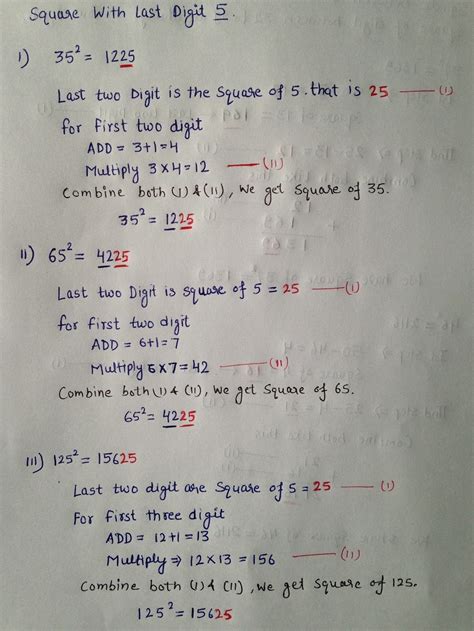 Square With Last Digit 5.
I) 35² = 1225
Last two Digit is the Square of 5. that is 25 —— (I)
for First two digit
ADD = 3+1=4
Multiply 3×4=12 —— (II)
Combine both (I) & (II), We get Square of 35.
35² = 1225
II) 65² = 4225
Last two Digit is square of 5 = 25 —— (I)
for First two digit
ADD = 6+1=7
Multiply 6×7=42 —— (II)
Combine both (I) & (II), We get Square of 65.
65² = 4225
III) 125² = 15625
Last two digit are Square of 5 = 25 —— (I)
For first three digit
ADD = 12+1=13
Multiply ⇒ 12×13 = 156 —— (II)
Combine both (I) & (II), We get Square of 125.
125² = 15625